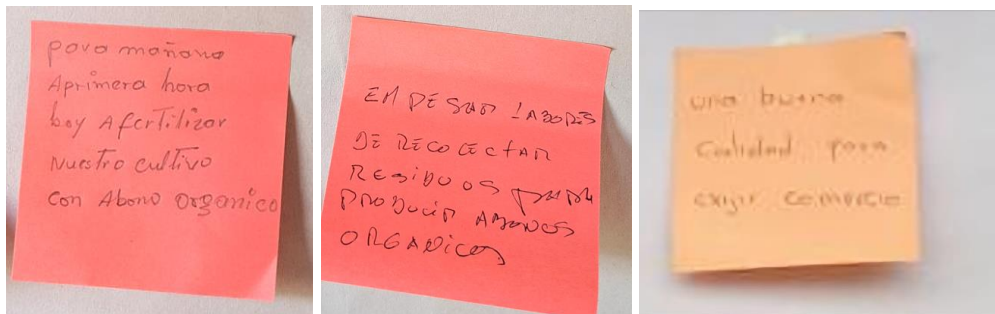 para mañana
Aprimera hora
boy A fertilizar
Nuestro cultivo
con Abono organico
EMPESAR LABORES
DE RECOLECTAR
RESIDUOS PARA
PRODUCIR ABONOS
ORGANICOS
una buena
Calidad para
exijir comercio